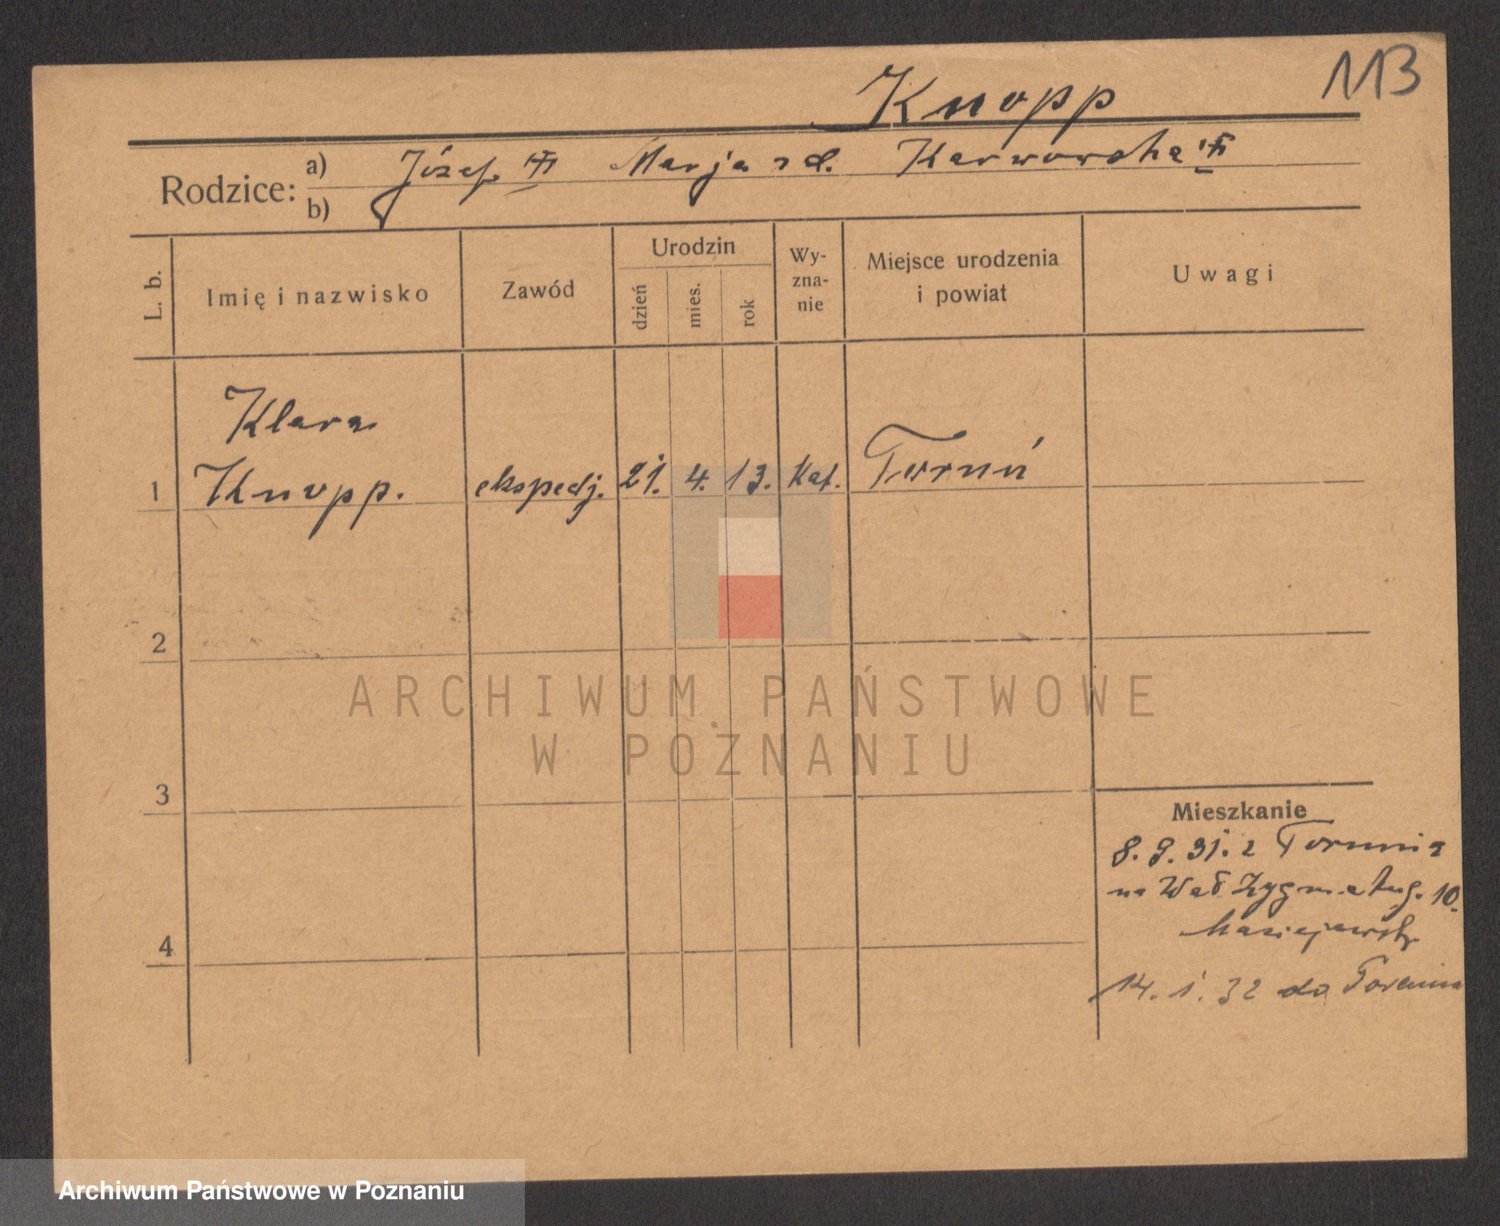 113
Knopp
Rodzice: a) Józef Marja zd. Karwowska
b)
L. b.
Imię i nazwisko
Zawód
Urodzin
dzień
mies.
rok
Wy-
zna-
nie
Miejsce urodzenia
i powiat
Uwagi
Klara
1 Knopp. ekspedj. 21. 4. 13. Kat. Toruń
2
3
4
ARCHIWUM PAŃSTWOWE
W POZNANIU
Mieszkanie
8. 9. 31. z Torunia
na Wał Zygm. Aug. 10.
14. 1. 32 do Torunia
Archiwum Państwowe w Poznaniu